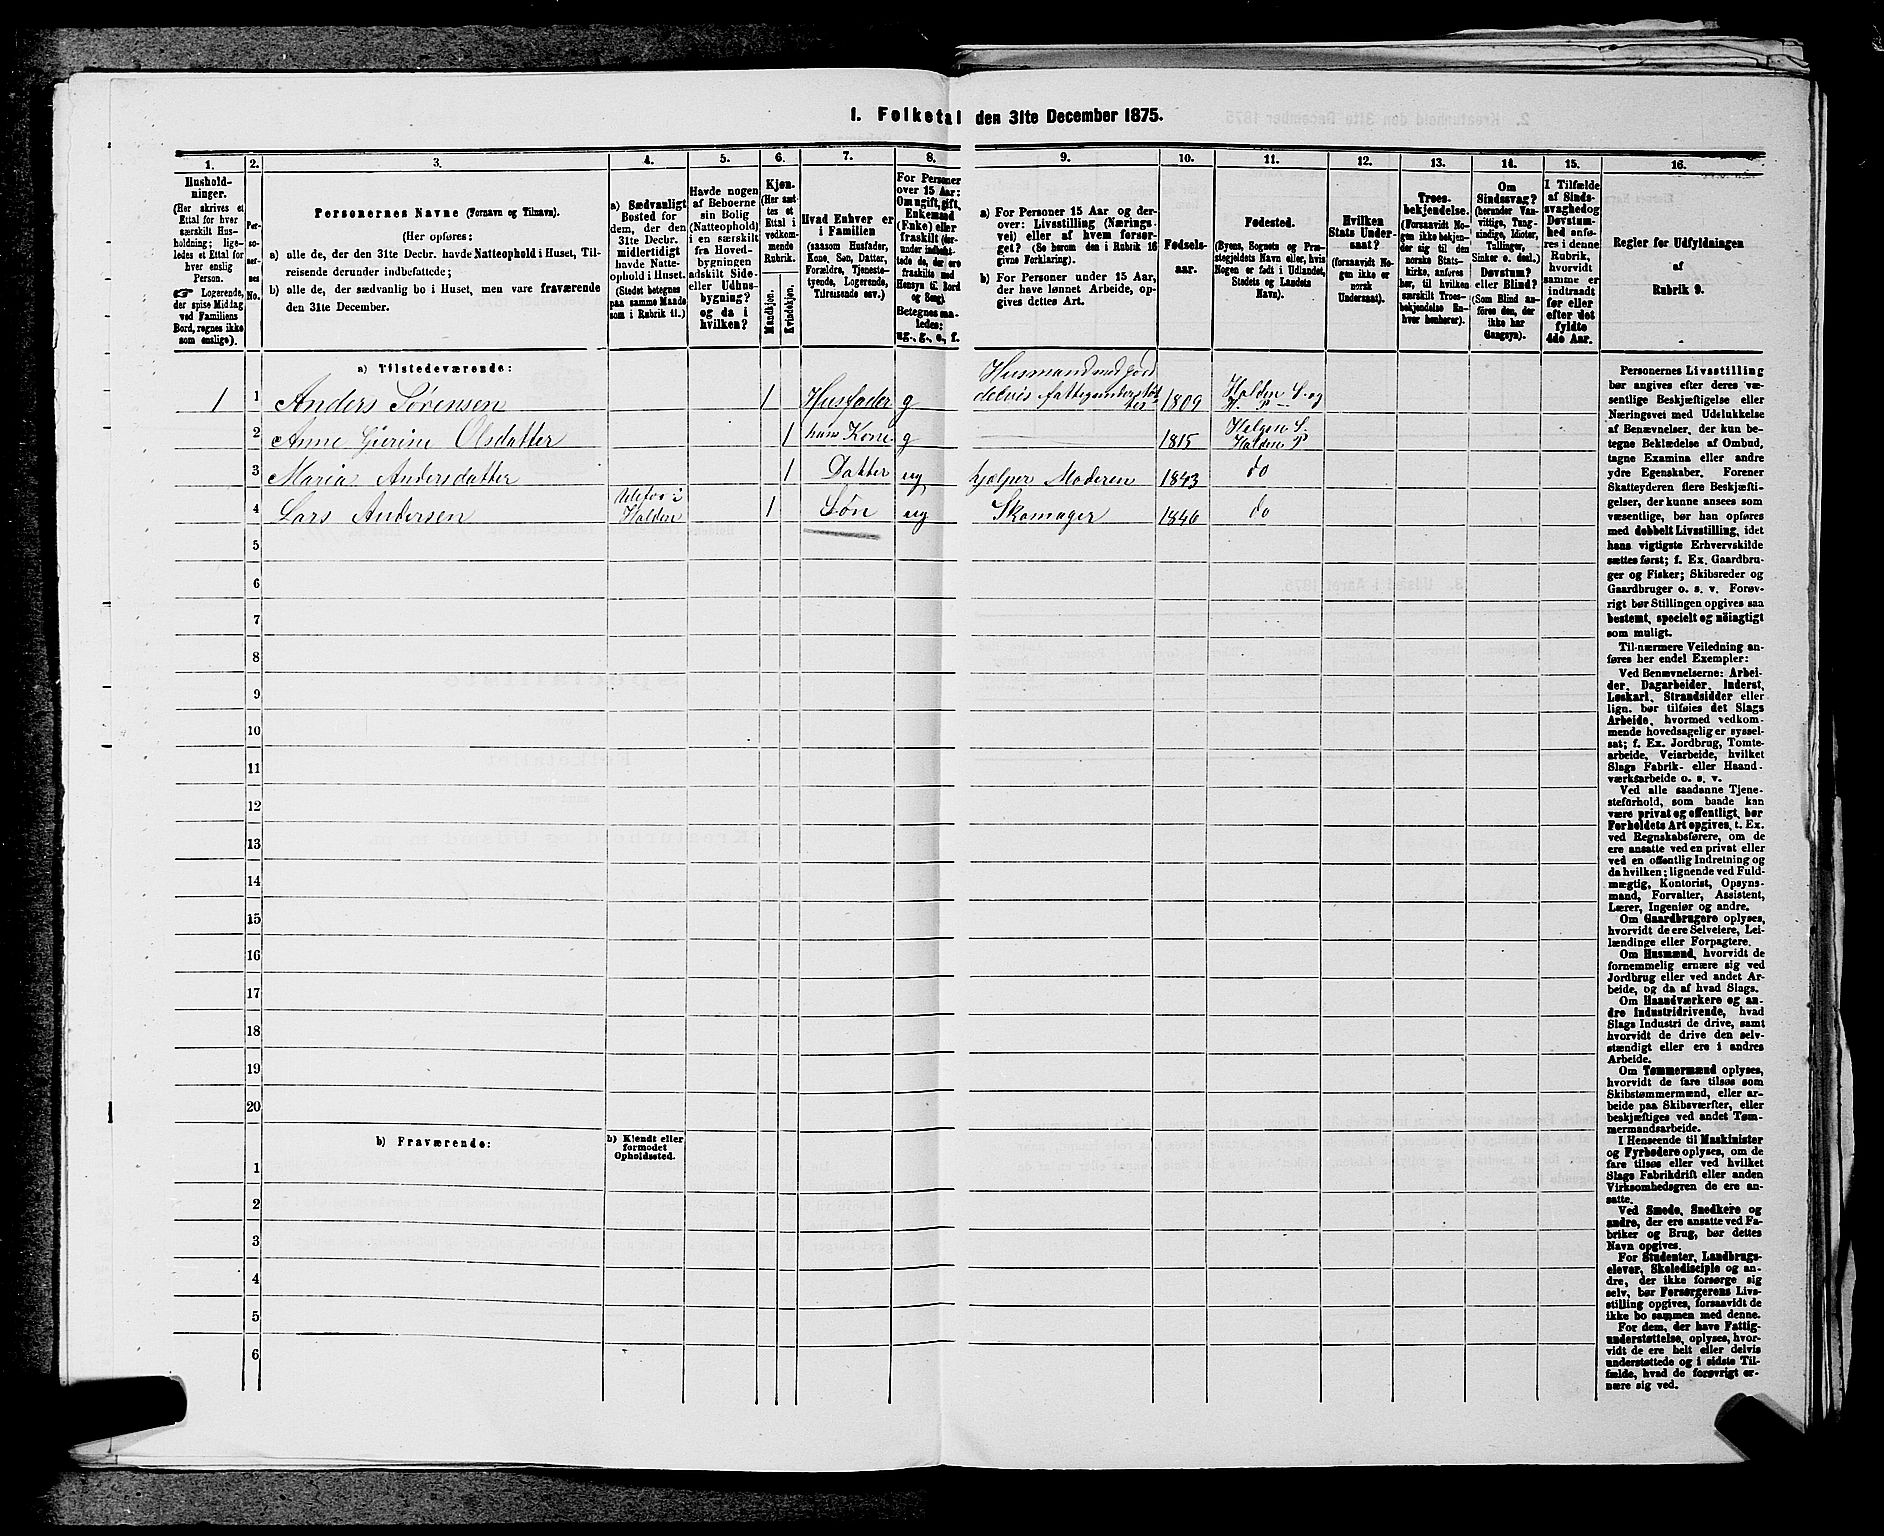 1. Folketal den 31te December 1875.
1. 2. 3. 4. 5. 6. 7. 8. 9. 10. 11. 12. 13. 14. 15. 16.
Hushold-
ninger.
(Her skrives et
Ettal for hver
særskilt Hus-
holdning; lige-
ledes et Ettal for
hver enslig
Person.
Logerende,
der spise Middag
ved Familiens
Bord, regnes ikke
som enslige).
Per-
so-
ner-
nes
No.
Personernes Navne (Fornavn og Tilnavn).
(Her opføres:
a) alle de, der den 31te Decbr. havde Natteophold i Huset, Til-
reisende derunder indbefattede;
b) alle de, der sædvanlig bo i Huset, men vare fraværende
den 31te December.
a) Sædvanligt
Bosted for
dem, der den
31te Decbr.
midlertidigt
havde Natte-
ophold i Huset.
(Stedet betegnes
paa samme Maade
som i Rubrik 11.)
Havde nogen
af Beboerne
sin Bolig
(Natteophold)
i en særskilt
fra Hoved-
bygningen
adskilt Side-
eller Udhus-
bygning?
og da i
hvilken?
Kjøn.
(Her sæt-
tes et
Ettal i
vedkom-
mende
Rubrik.
Mandkjøn.
Kvindekjøn.
Hvad Enhver er
i Familien
(saasom Husfader,
Kone, Søn, Datter,
Forældre, Tjeneste-
tyende, Logerende,
Tilreisende osv.)
For Personer
over 15 Aar:
Om ugift, gift,
Enkemand
(Enke) eller
fraskilt (her-
under indbefat-
tede de, der ere
fraskilte med
Hensyn til Bord
og Seng).
Betegnes saa-
ledes:
ug., g., e., f.
a) For Personer 15 Aar og der-
over: Livsstilling (Nærings-
vei) eller af hvem forsør-
get? (Se herom den i Rubrik 16
givne Forklaring).
b) For Personer under 15 Aar,
der have lønnet Arbeide, op-
gives dettes Art.
Fødsels-
aar.
Fødested.
(Byens, Sognets og Præ-
stegjeldets Navn eller, hvis
Nogen er født i Udlandet,
Stedets og Landets
Navn).
Hvilken
Stats Under-
saat?
(forsaavidt No-
gen ikke er
norsk
Undersaat).
Troes-
bekjendelse.
(Forsaavidt No-
gen ikke bekjen-
der sig til den
norske Stats-
kirke, anføres
her, til hvilken
særskilt Troes-
bekjendelse En-
hver henhører).
Om
Sindssvag?
(herunder Van-
vittige, Tung-
sindige, Idioter,
Tullinger,
Sinker o. desl.)
Døvstum?
eller Blind?
(Som Blind an-
føres den, der
ikke har
Gangsyn).
I Tilfælde
af Sinds-
svaghed og
Døvstum-
hed anfø-
res i denne
Rubrik,
hvorvidt
samme er
indtraadt
før eller
efter det
fyldte
4de Aar.
Regler for Udfyldningen
af
Rubrik 9.
a) Tilstedeværende:
Husmand med jord
1 1 Anders Sørensen 1 Husfader g delvis fattigunderstøt- 1809 Holden S. og
tes H. P
2 Anne Gurine Olsdatter 1 hans Kone g 1815 Helgen S.
Holden P
3 Maria Andersdatter 1 Datter ug hjælper Moderen 1843 do
4 Lars Andersen Holden 1 Søn ug Skomager 1846 do
5
6
7
8
9
10
11
12
13
14
15
16
17
18
19
20
b) Fraværende:
b) Kjendt eller
formodet
Opholdssted.
1
2
3
4
5
6
Personernes Livsstilling
bør angives efter deres væ-
sentlige Beskjæftigelse eller
Næringsvei med Udelukkelse
af Benævnelser, der kun be-
tegne Beklædelse af Ombud,
tagne Examina eller andre
ydre Egenskaber. Forener
Skatteyderen flere Beskjæfti-
gelser, der kunne ansees som
væsentlige, bør han opføres
med dobbelt Livsstilling, idet
hans vigtigste Erhvervskilde
sættes først; f. Ex. Gaardbru-
ger og Fisker; Skibsreder og
Gaardbruger o. s. v. Forøv-
rigt bør Stillingen opgives saa
bestemt, specielt og nöiagtigt
som muligt.
Til nærmere Veiledning an-
føres her endel Exempler:
Ved Benævnelserne: Arbei-
der, Dagarbeider, Inderst,
Løskarl, Strandsidder eller
lign. bør tilføies det Slags
Arbeide, hvormed vedkom-
mende hovedsagelig er syssel-
sat; f. Ex. Jordbrug, Tomte-
arbeide, Veiarbeide, hvilket
Slags Fabrik- eller Haand-
værksarbeide o. s. v.
Ved alle saadanne Tjene-
steforhold, som baade kan
være privat og offentligt, bør
Forholdets Art opgives, t. Ex.
ved Regnskabsførere, om de
ere ansatte ved en privat eller
ved en offentlig Indretning og
da hvilken; lignende ved Fuld-
mægtig, Kontorist, Opsyns-
mand, Forvalter, Assistent,
Lærer, Ingeniør og andre.
Om Gaardbrugere oplyses,
hvorvidt de ere Selveiere, Lei-
lændinge eller Forpagtere.
Om Husmænd, hvorvidt de
fornemmelig ernære sig ved
Jordbrug eller ved andet Ar-
beide, og da af hvad Slags.
Om Haandværkere og an-
dre Industridrivende, hvad
Slags Industri de drive, samt
hvorvidt de drive den selv-
stændigt eller ere i andres
Arbeide.
Om Tømmermænd oplyses,
hvorvidt de fare tilsøs som
Skibstømmermænd, eller ar-
beide paa Skibsværfter, eller
beskjæftiges ved andet Tøm-
mermandsarbeide.
I Henseende til Maskinister
og Fyrbødere oplyses, om de
fare tilsøs eller ved hvilket
Slags Fabrikdrift eller anden
Virksomhedsgren de ere an-
satte.
Ved Smede, Snedkere og
andre, der ere ansatte ved Fa-
briker og Brug, bør dettes
Navn opgives.
For Studenter, Landbrugs-
elever, Skoledisciple og an-
dre, der ikke forsørge sig
selv, bør Forsørgerens Livs-
stilling opgives, forsaavidt de
ikke bo sammen med denne.
For dem, der have Fattig-
understøttelse, oplyses, hvor-
vidt de ere helt eller delvis
understøttede og i sidste Til-
fælde, hvad de forøvrigt er-
nære sig ved.